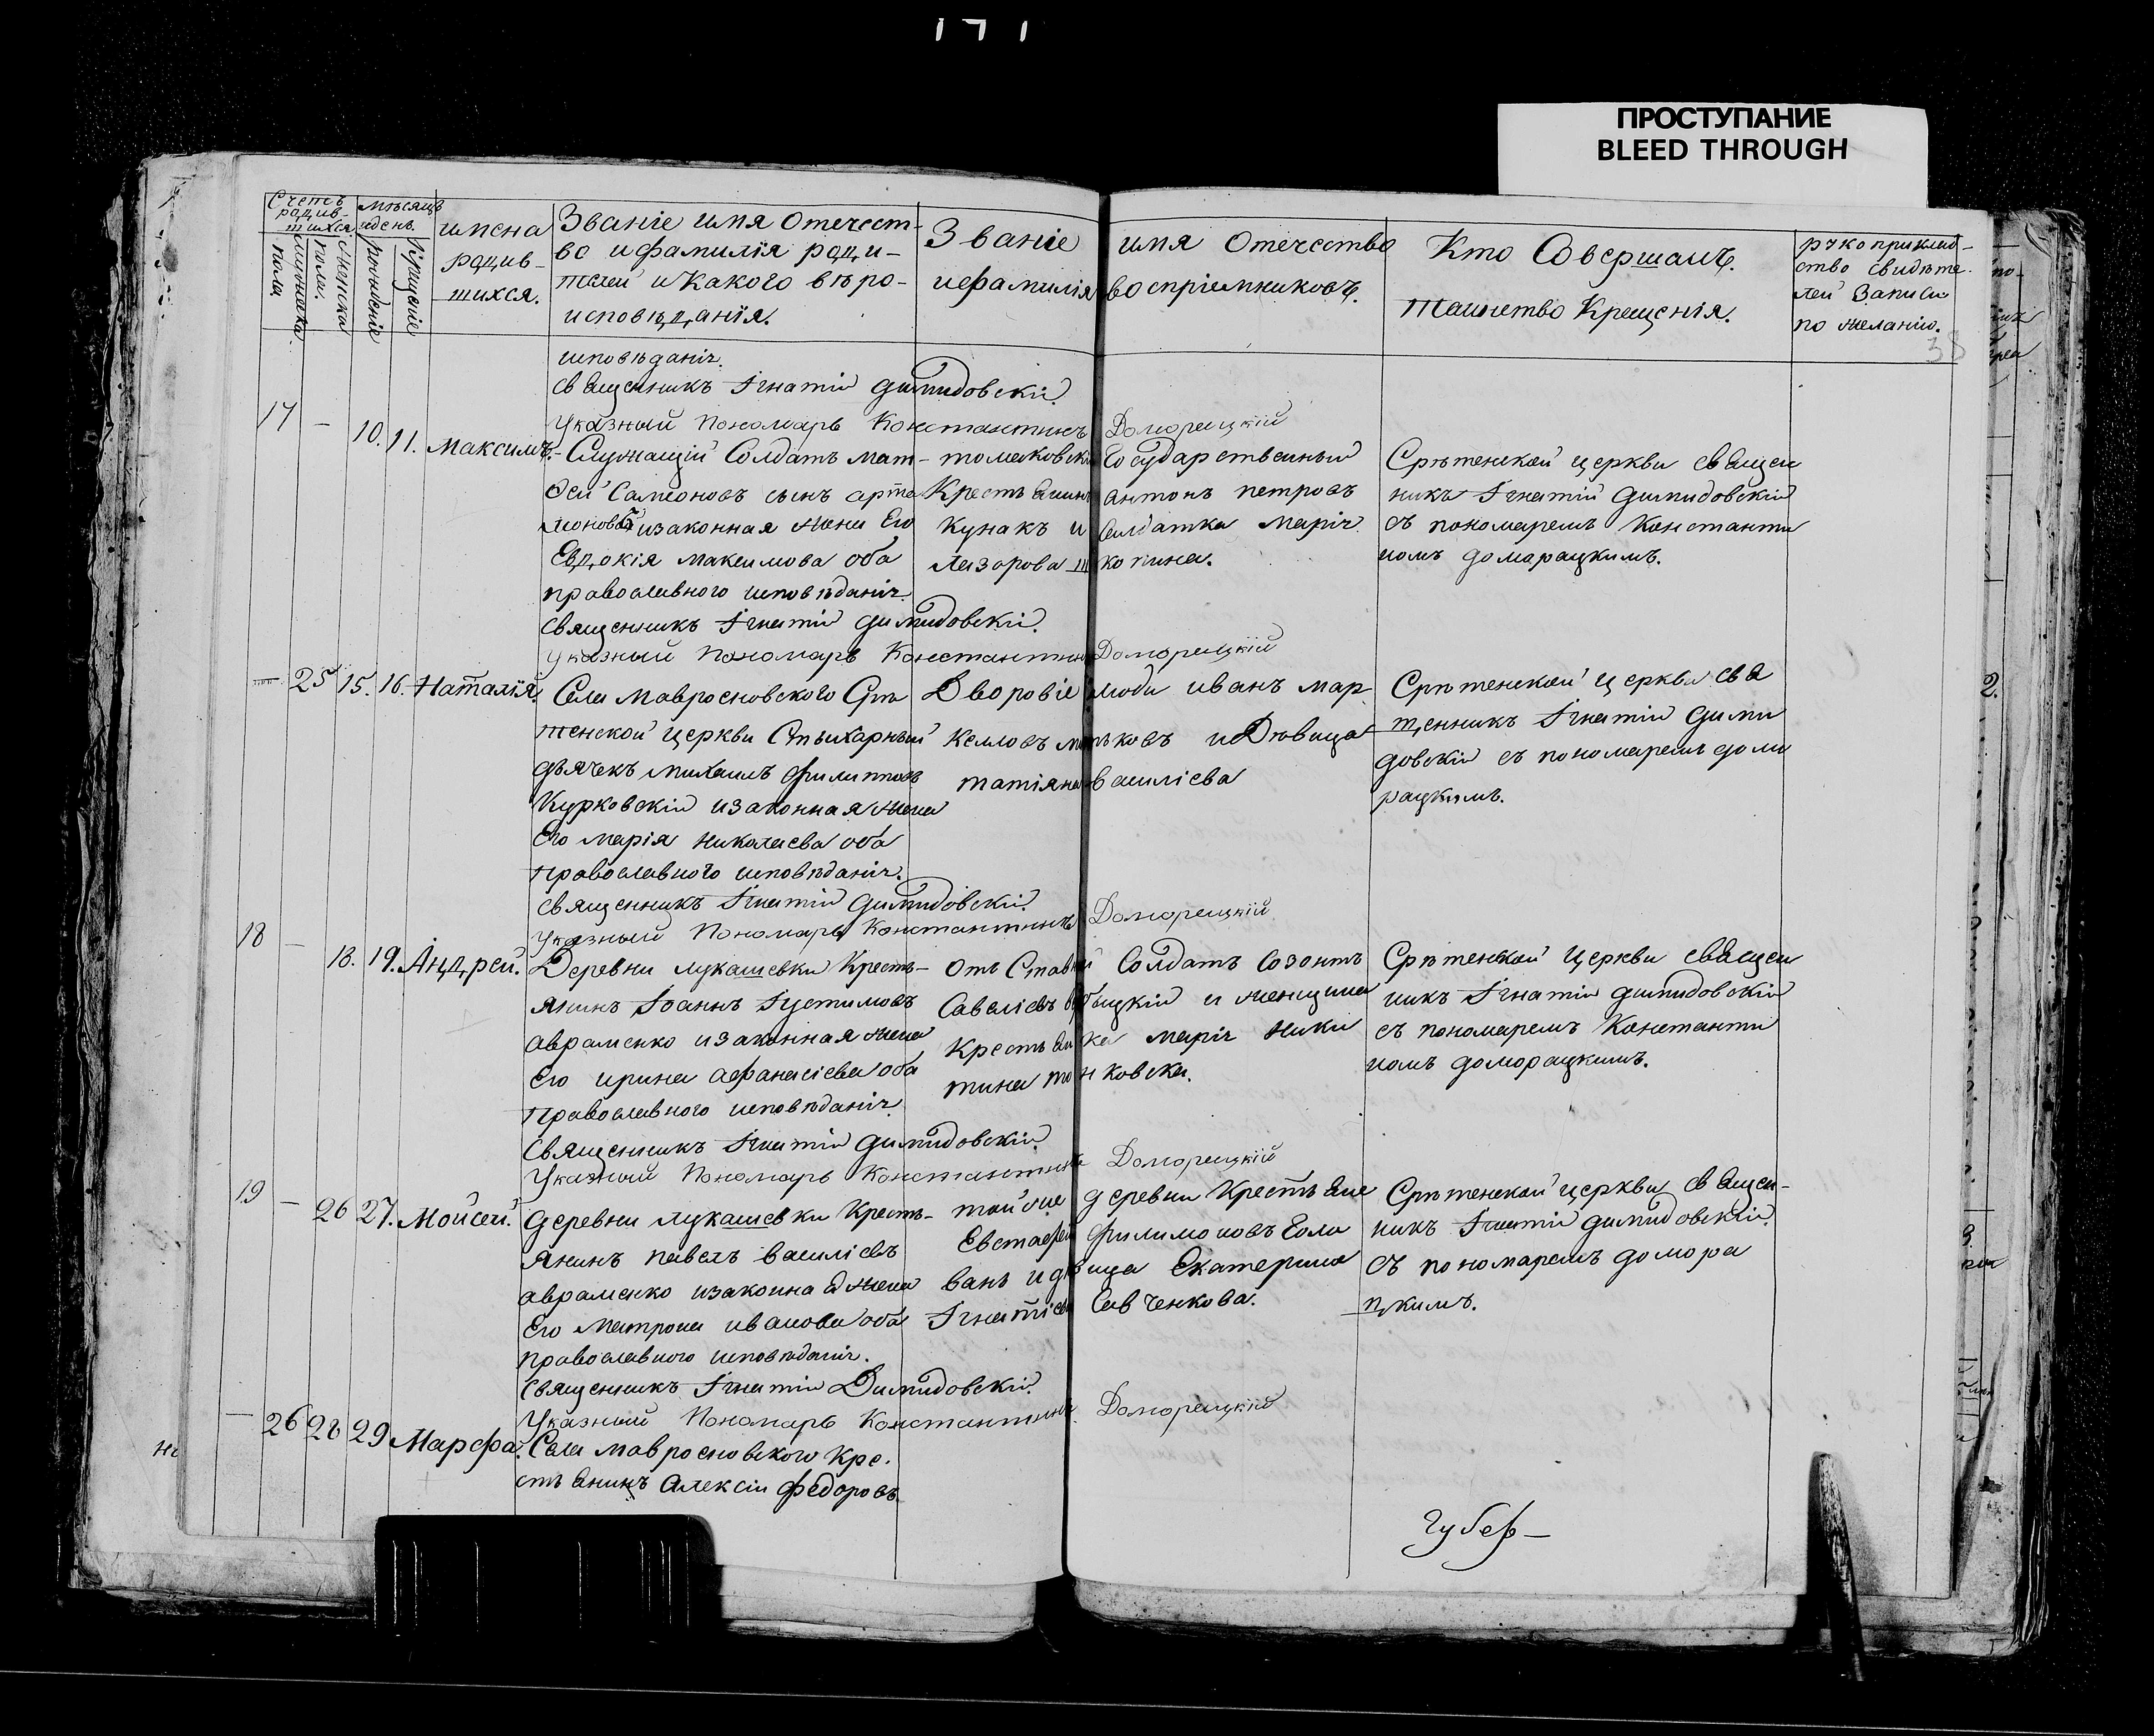 ПРОСТУПАНИЕ
BLEED THROUGH
Счетъ родив-шихся.
мужеска пола
женска пола.
мѣсяцъ и день.
рожденіе
крещеніе
имена родив-шихся.
Званіе имя отечест-
во и фамилія роди-
телей и какого вѣро-
исповѣданія.
Званіе имя отечество
и фамилія воспріемниковъ.
Кто Совершалъ
таинство Крещенія.
рукоприклад-
ство свидѣте-
лей записи
по желанію.
исповѣданія.
священникъ Игнатій Димидовскій
Указный Пономарь Константинъ Доморацкій
17 — 10. 11. Максимъ.
Служащій Солдатъ Мат-
фей Самсоновъ сынъ
и законная жена Его
Евдокія Максимова оба
православного исповѣданія.
Государственный
Крестьянинъ Антонъ Петровъ
Кунакъ и Солдатка Марія
Лазорова
Срѣтенской церкви священ
никъ Игнатій Димидовскій
съ пономаремъ Константи
номъ Доморацкимъ.
Священникъ Игнатій Димидовскій
Указный Пономарь Константинъ Доморацкій
— 25 15. 16. Наталія.
Села Мавросновского Срѣ
тенской церкви Стыхарный
дьячекъ Михаилъ Филиповъ
Курковскій и законная жена
Его Марія Николаева оба
православного исповѣданія.
Дворовіе люди Иванъ Мар
и Дѣвица
татіяна василіева
Срѣтенской церкви свя
щенникъ Игнатій Дими
довскій съ пономаремъ домо
рацкимъ.
священникъ Игнатій Димидовскій
Указный Пономарь Константинъ Доморацкій
18 — 18. 19. Андрей.
Деревни Лукашевки Кресть-
янинъ Іоаннъ Іустимовъ
авраменко и законная жена
Его Ирина Афанасіева оба
Православного исповѣданія
Отставній Солдатъ Созонтъ
Савеліевъ и женщина
Крестьянка Марія Ники
тина
Срѣтенской Церкви священ
никъ Игнатій Димидовскій
съ пономаремъ Константи
номъ доморацкимъ.
Священникъ Игнатій Димидовскій
Указный Пономарь Константинъ Доморацкій
19 — 26 27. Мойсей.
Деревни Лукашевки Кресть-
янинъ Павелъ Василіевъ
авраменко и законная жена
Его Матрона Иванова оба
православного исповѣданія.
той же деревни Крестьяне
Евстафій Филимоновъ Голо
вань и дѣвица Екатерина
Игнатіева Савченкова.
Срѣтенской церкви священ-
никъ Игнатій Димидовскій
съ пономаремъ домора
цкимъ.
Священникъ Игнатій Димидовскій
Указный Пономарь Константинъ Доморацкій
— 26 28 29 Марфа.
Села Мавросновского Кре-
стьянинъ Алексій Федоровъ
Губер—